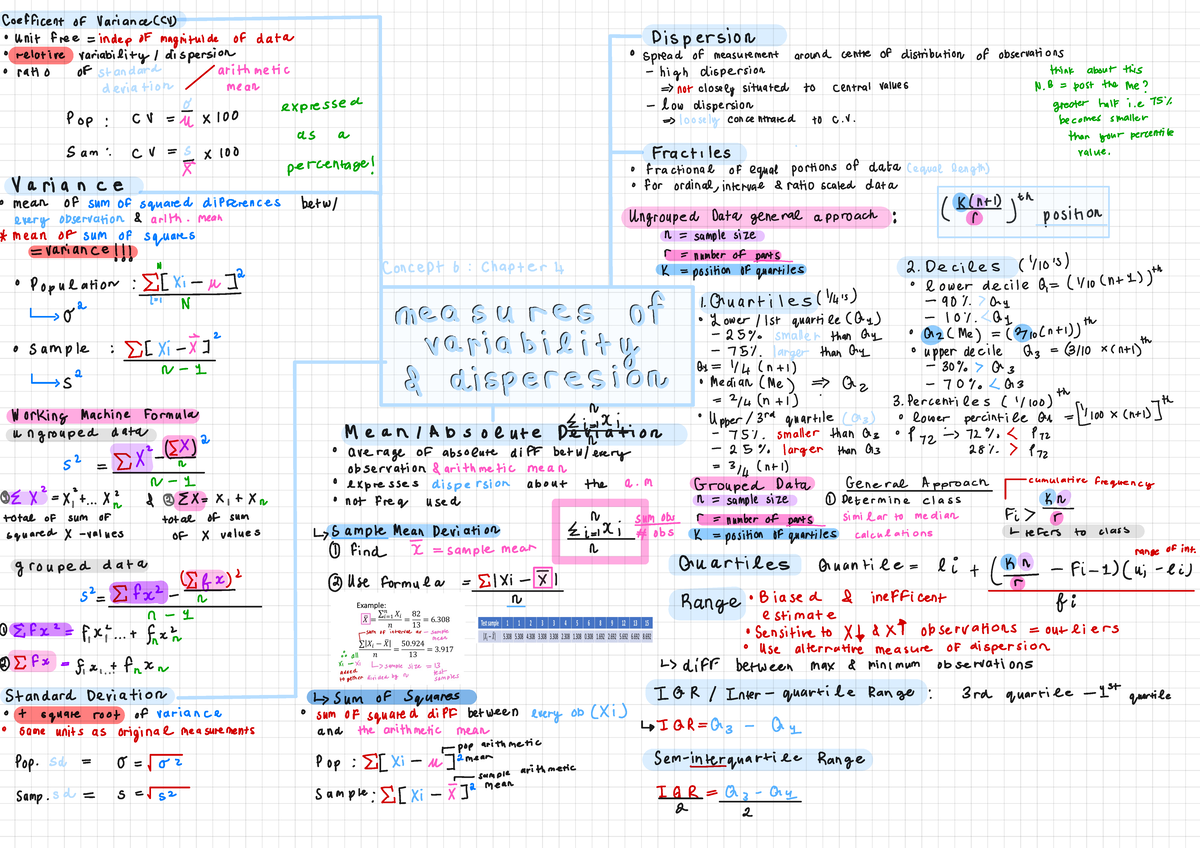 Coefficent of Variance (CV)
• Unit free = indep of magnitulde of data
• relative variability / dispersion
• ratio of standard deviation / arithmetic mean
Pop : CV = σ/μ × 100
Sam : CV = s/X̄ × 100
expressed
as a
percentage!
Variance
• mean of sum of squared differences betw/
every observation & arith. mean
* mean of sum of squares
= variance !!!
• Population : Σ[Xi − μ]² / N
↳ σ²
• Sample : Σ[Xi − X̄]² / n − 1
↳ s²
Working Machine Formula
ungrouped data
s² = ΣX² − (ΣX)²/n / n − 1
① ΣX² = X₁² + ... X²n & ② ΣX = X₁ + Xn
total of sum of squared X -values
total of sum of X values
grouped data
s² = Σfx² − (Σfx)²/n / n − 1
① Σfx² = f₁x₁² ... + fnx²n
② Σfx = f₁x₁ ... + fnxn
Standard Deviation
• + square root of variance
• same units as original measurements
Pop. sd = σ = √σ²
Samp. sd = s = √s²
Concept 6 : Chapter 4
measures of
variability
& disperesion
Mean / Absolute Deviation
n
Σi=1 xi
n
• average of absolute diff betw/every
observation & arithmetic mean
• expresses dispersion about the a.m
• not freq used
↳ Sample Mean Deviation
① Find x̄ = sample mean
n
Σi=1 xi
n
sum obs
# obs
② Use formula = Σ|Xi − X̄| / n
Example:
X̄ = Σⁿi=1 Xi / n = 82/13 = 6.308
↳ sum of interval or sample mean
Σ|Xi − X̄| / n = 50.924/13 = 3.917
∴ all
xi − x̄
added
together divided by n
↳ sample size = 13 test samples
Test sample 1 2 3 4 5 6 7 8 9 10 11 12 13
|Xi − X̄| 5.308 5.308 4.308 3.308 3.308 2.308 1.308 0.308 1.692 2.692 5.692 6.692 8.692
↳ Sum of Squares
• sum of squared diff between every ob (Xi)
and the arithmetic mean
Pop : Σ[Xi − μ]²
pop arithmetic mean
Sample : Σ[Xi − X̄]²
sample arithmetic mean
Dispersion
• Spread of measurement around centre of distribution of observations
− high dispersion
⇒ not closely situated to central values
− low dispersion
⇒ loosely concentrated to C.V.
think about this
N.B = post the me?
greater half i.e 75%
becomes smaller
than your percentile
value.
Fractiles
• fractional of equal portions of data (equal length)
• for ordinal, interval & ratio scaled data
Ungrouped Data general approach :
(K(n+1) / r)th position
n = sample size
r = number of parts
K = position of quartiles
1. Quartiles (1/4's)
• Lower / 1st quartile (Q1)
− 25% smaller than Q1
− 75% larger than Q1
Q1 = 1/4 (n+1)
• Median (Me) ⇒ Q2
= 2/4 (n+1)
• Upper / 3rd quartile (Q3)
− 75% smaller than Q3
− 25% larger than Q3
= 3/4 (n+1)
2. Deciles (1/10's)
• lower decile Q1 = (1/10 (n+1))th
− 90% > Q1
− 10% < Q1
• Q2 (Me) = (2/10 (n+1))th
• upper decile Q3 = (3/10 × (n+1)th
− 30% > Q3
− 70% < Q3
3. Percentiles (1/100)th
• lower percintile Q1 = [1/100 × (n+1)]th
• P72 → 72% < P72
28% > P72
Grouped Data
n = sample size
r = number of parts
K = position of quartiles
General Approach
① Determine class
similar to median
calculations
cumulative frequency
Fi > Kn / r
↳ refers to class
Quartiles
Quantile = li + (Kn/r − Fi−1)(ui − li) / fi
range of int.
Range
• Biased & inefficent
estimate
• Sensitive to X↓ & X↑ observations = outliers
• Use alternative measure of dispersion
↳ diff between max & minimum observations
IQR / Inter − quartile Range : 3rd quartile − 1st quartile
↳ IQR = Q3 − Q1
Sem-interquartile Range
IQR / 2 = Q3 − Q1 / 2